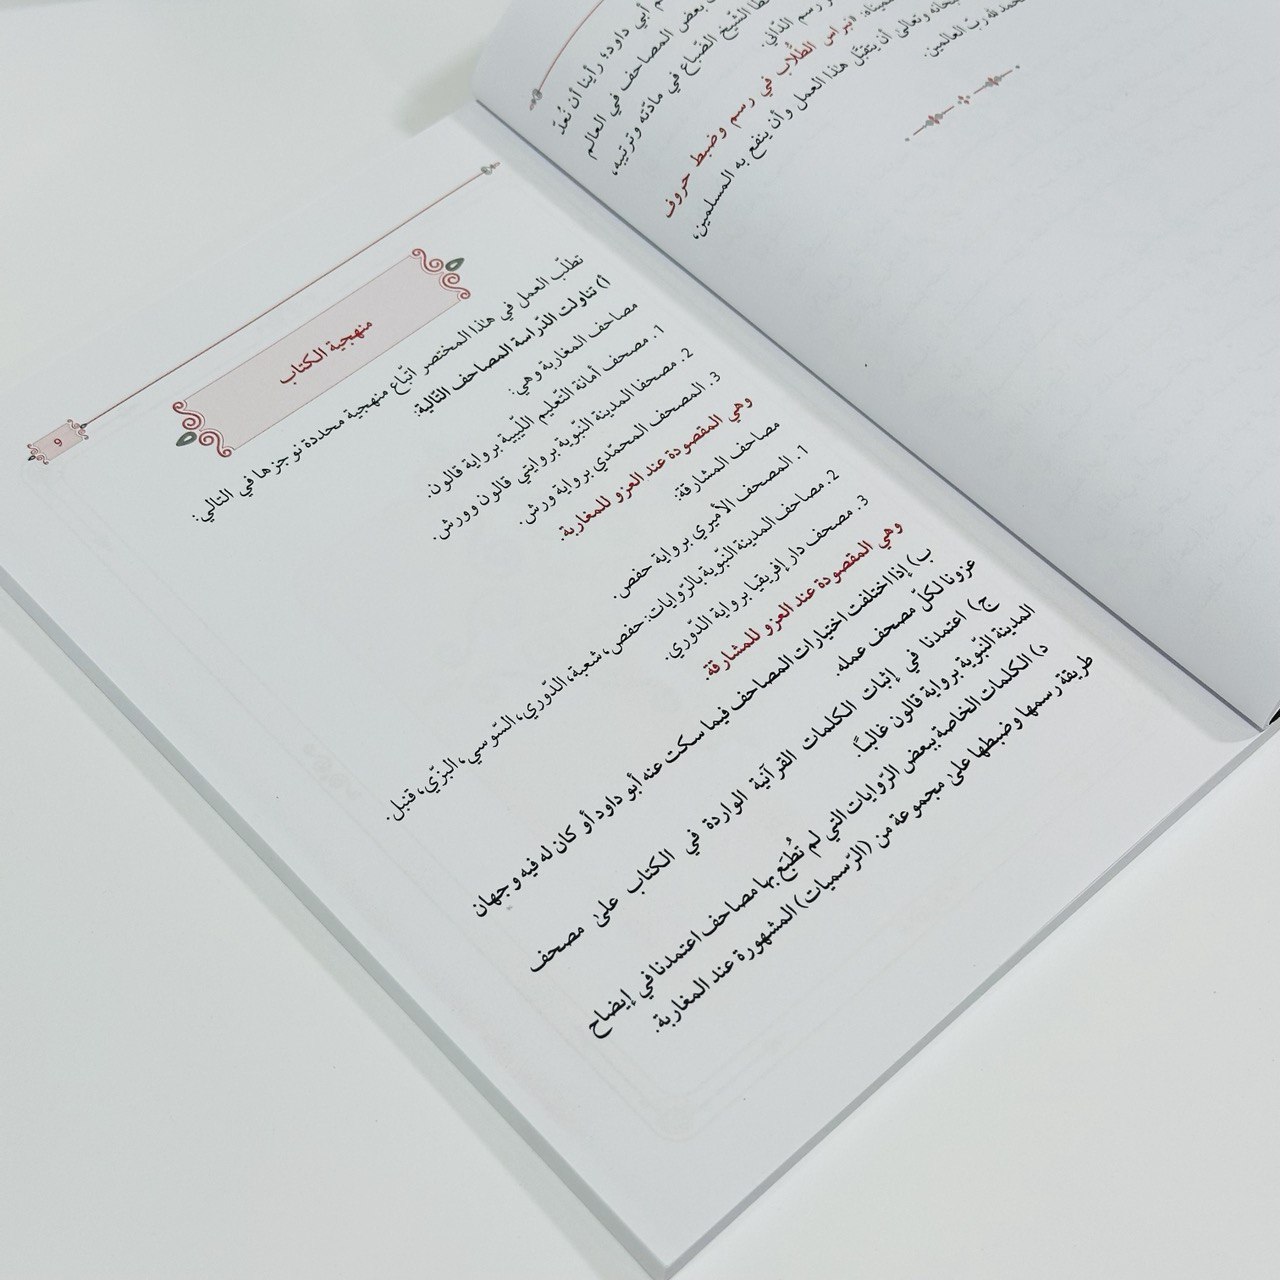 م أبي داود؛ رأينا أن نُعدّ
بعض المصاحف في العالم
الشّيخ الضّباع في مادّته وترتيبه،
رسم الدّاني.
نبراس الطُّلاب في رسم وضبط حروف
وتعالى أن يتقبَّل هٰذا العمل وأن ينفع به المسلمين،
لله ربّ العالمين.
٩
منهجية الكتاب
تطلّب العمل في هٰذا المختصر اتّباع منهجية محددة نوجزها في التالي:
أ) تناولت الدّراسة المصاحف التّالية:
مصاحف المغاربة وهي:
1. مصحف أمانة التّعليم اللّيبية برواية قالون.
2. مصحفا المدينة النّبوية بروايتي قالون وورش.
3. المصحف المحمّدي برواية ورش.
وهي المقصودة عند العزو للمغاربة.
مصاحف المشارقة:
1. المصحف الأميري برواية حفص.
2. مصاحف المدينة النّبوية بالرّوايات: حفص، شعبة، الدّوري، السّوسي، البزّي، قنبل.
3. مصحف دار إفريقيا برواية الدّوري.
وهي المقصودة عند العزو للمشارقة.
ب) إذا اختلفت اختيارات المصاحف فيما سكت عنه أبو داود أو كان له فيه وجهان
عزونا لكلّ مصحف عمله.
ج) اعتمدنا في إثبات الكلمات القرآنية الواردة في الكتاب علىٰ مصحف
المدينة النّبوية برواية قالون غالبًا.
د) الكلمات الخاصة ببعض الرّوايات التي لم تُطبَع بها مصاحف اعتمدنا في إيضاح
طريقة رسمها وضبطها علىٰ مجموعة من (الرّسميات) المشهورة عند المغاربة.